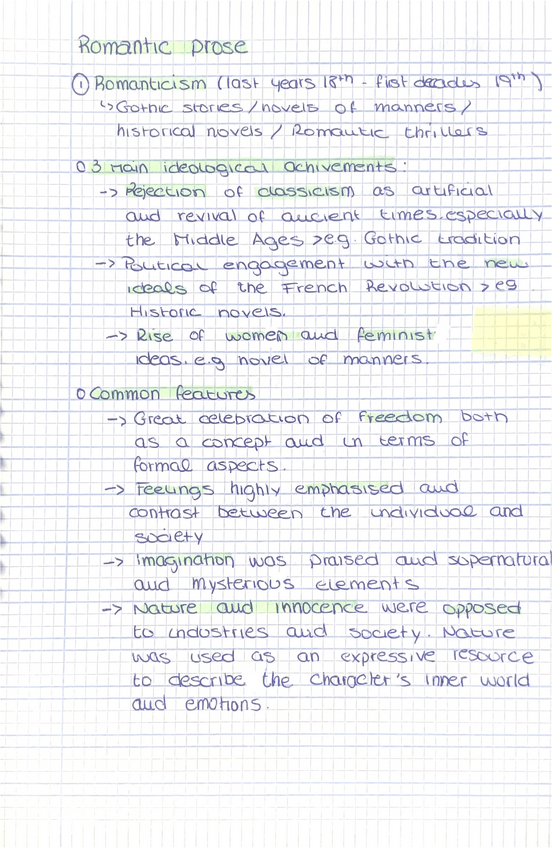 Romantic prose
① Romanticism (last years 18th - fist decades 19th)
↳ Gothic stories / novels of manners /
historical novels / Romantic thrillers
O 3 Main ideological achivements:
-> Rejection of classicism as artificial
and revival of ancient times, especially
the Middle Ages > eg. Gothic tradition
-> Political engagement with the new
ideals of the French Revolution > eg
Historic novels.
-> Rise of women and feminist
ideas. e.g novel of manners.
O Common features
-> Great celebration of freedom both
as a concept and in terms of
formal aspects.
-> Feelings highly emphasised and
contrast between the individual and
society
-> Imagination was praised and supernatural
and mysterious elements
-> Nature and innocence were opposed
to industries and society. Nature
was used as an expressive resource
to describe the character's inner world
and emotions.